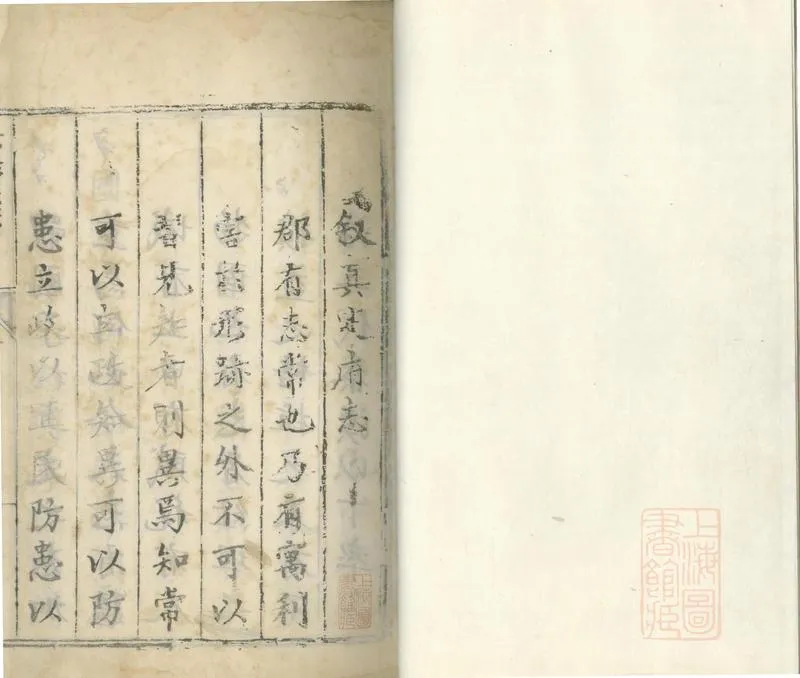 叙真定府志
郡有志常也乃有寓利
害於形跡之外不可以
習見知者則異焉知常
可以立政知異可以防
患立政以
防患以
上海圖書館藏